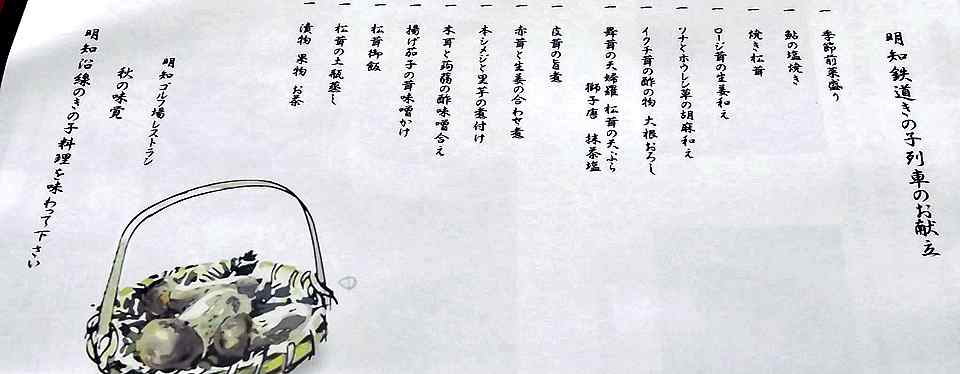 明知鉄道きの子列車のお献立
一 季節前菜盛り
一 鮎の塩焼き
一 焼き松茸
一 ロージ茸の生姜和え
一 ツナとホウレン草の胡麻和え
一 イクチ茸の酢の物 大根おろし
一 舞茸の天婦羅 松茸の天ぷら
獅子唐 抹茶塩
一 皮茸の旨煮
一 赤茸と生姜の合わせ煮
一 本シメジと里芋の煮付け
一 木耳と蒟蒻の酢味噌合え
一 揚げ茄子の茸味噌かけ
一 松茸御飯
一 松茸の土瓶蒸し
一 漬物 果物 お茶
明知ゴルフ場レストラン
秋の味覚
明知沿線のきの子料理を味わって下さい